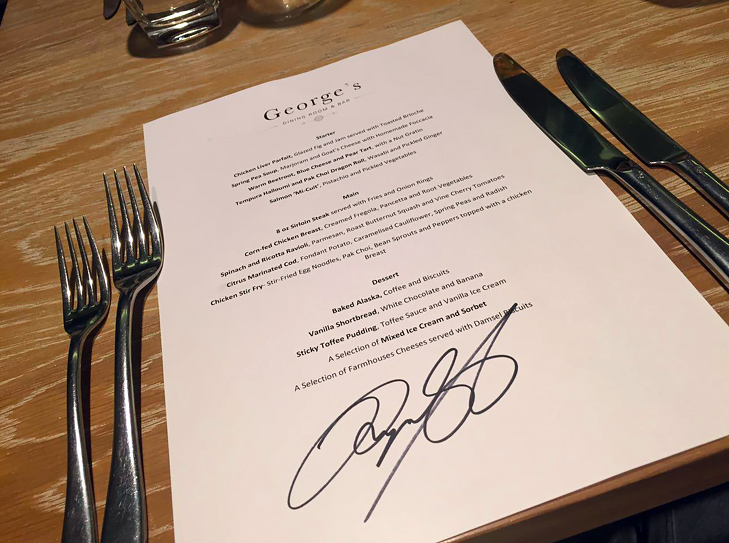 George's
DINING ROOM & BAR
Starter
Chicken Liver Parfait, Glazed Fig and Jam served with Toasted Brioche
Spring Pea Soup, Marjoram and Goat's Cheese with Homemade Foccacia
Warm Beetroot, Blue Cheese and Pear Tart, with a Nut Gratin
Tempura Halloumi and Pak Choi Dragon Roll, Wasabi and Pickled Ginger
Salmon 'Mi-Cuit', Pistachio and Pickled Vegetables
Main
8 oz Sirloin Steak served with Fries and Onion Rings
Corn-fed Chicken Breast, Creamed Fregola, Pancetta and Root Vegetables
Spinach and Ricotta Ravioli, Parmesan, Roast Butternut Squash and Vine Cherry Tomatoes
Citrus Marinated Cod, Fondant Potato, Caramelised Cauliflower, Spring Peas and Radish
Chicken Stir Fry- Stir-Fried Egg Noodles, Pak Choi, Bean Sprouts and Peppers topped with a chicken
Breast
Dessert
Baked Alaska, Coffee and Biscuits
Vanilla Shortbread, White Chocolate and Banana
Sticky Toffee Pudding, Toffee Sauce and Vanilla Ice Cream
A Selection of Mixed Ice Cream and Sorbet
A Selection of Farmhouses Cheeses served with Damsel Biscuits